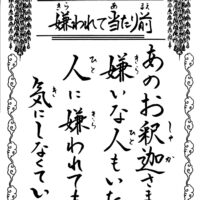 嫌われて当たり前
あのお釈迦さま
嫌いな人もいた
人に嫌われても
気にしなくてい